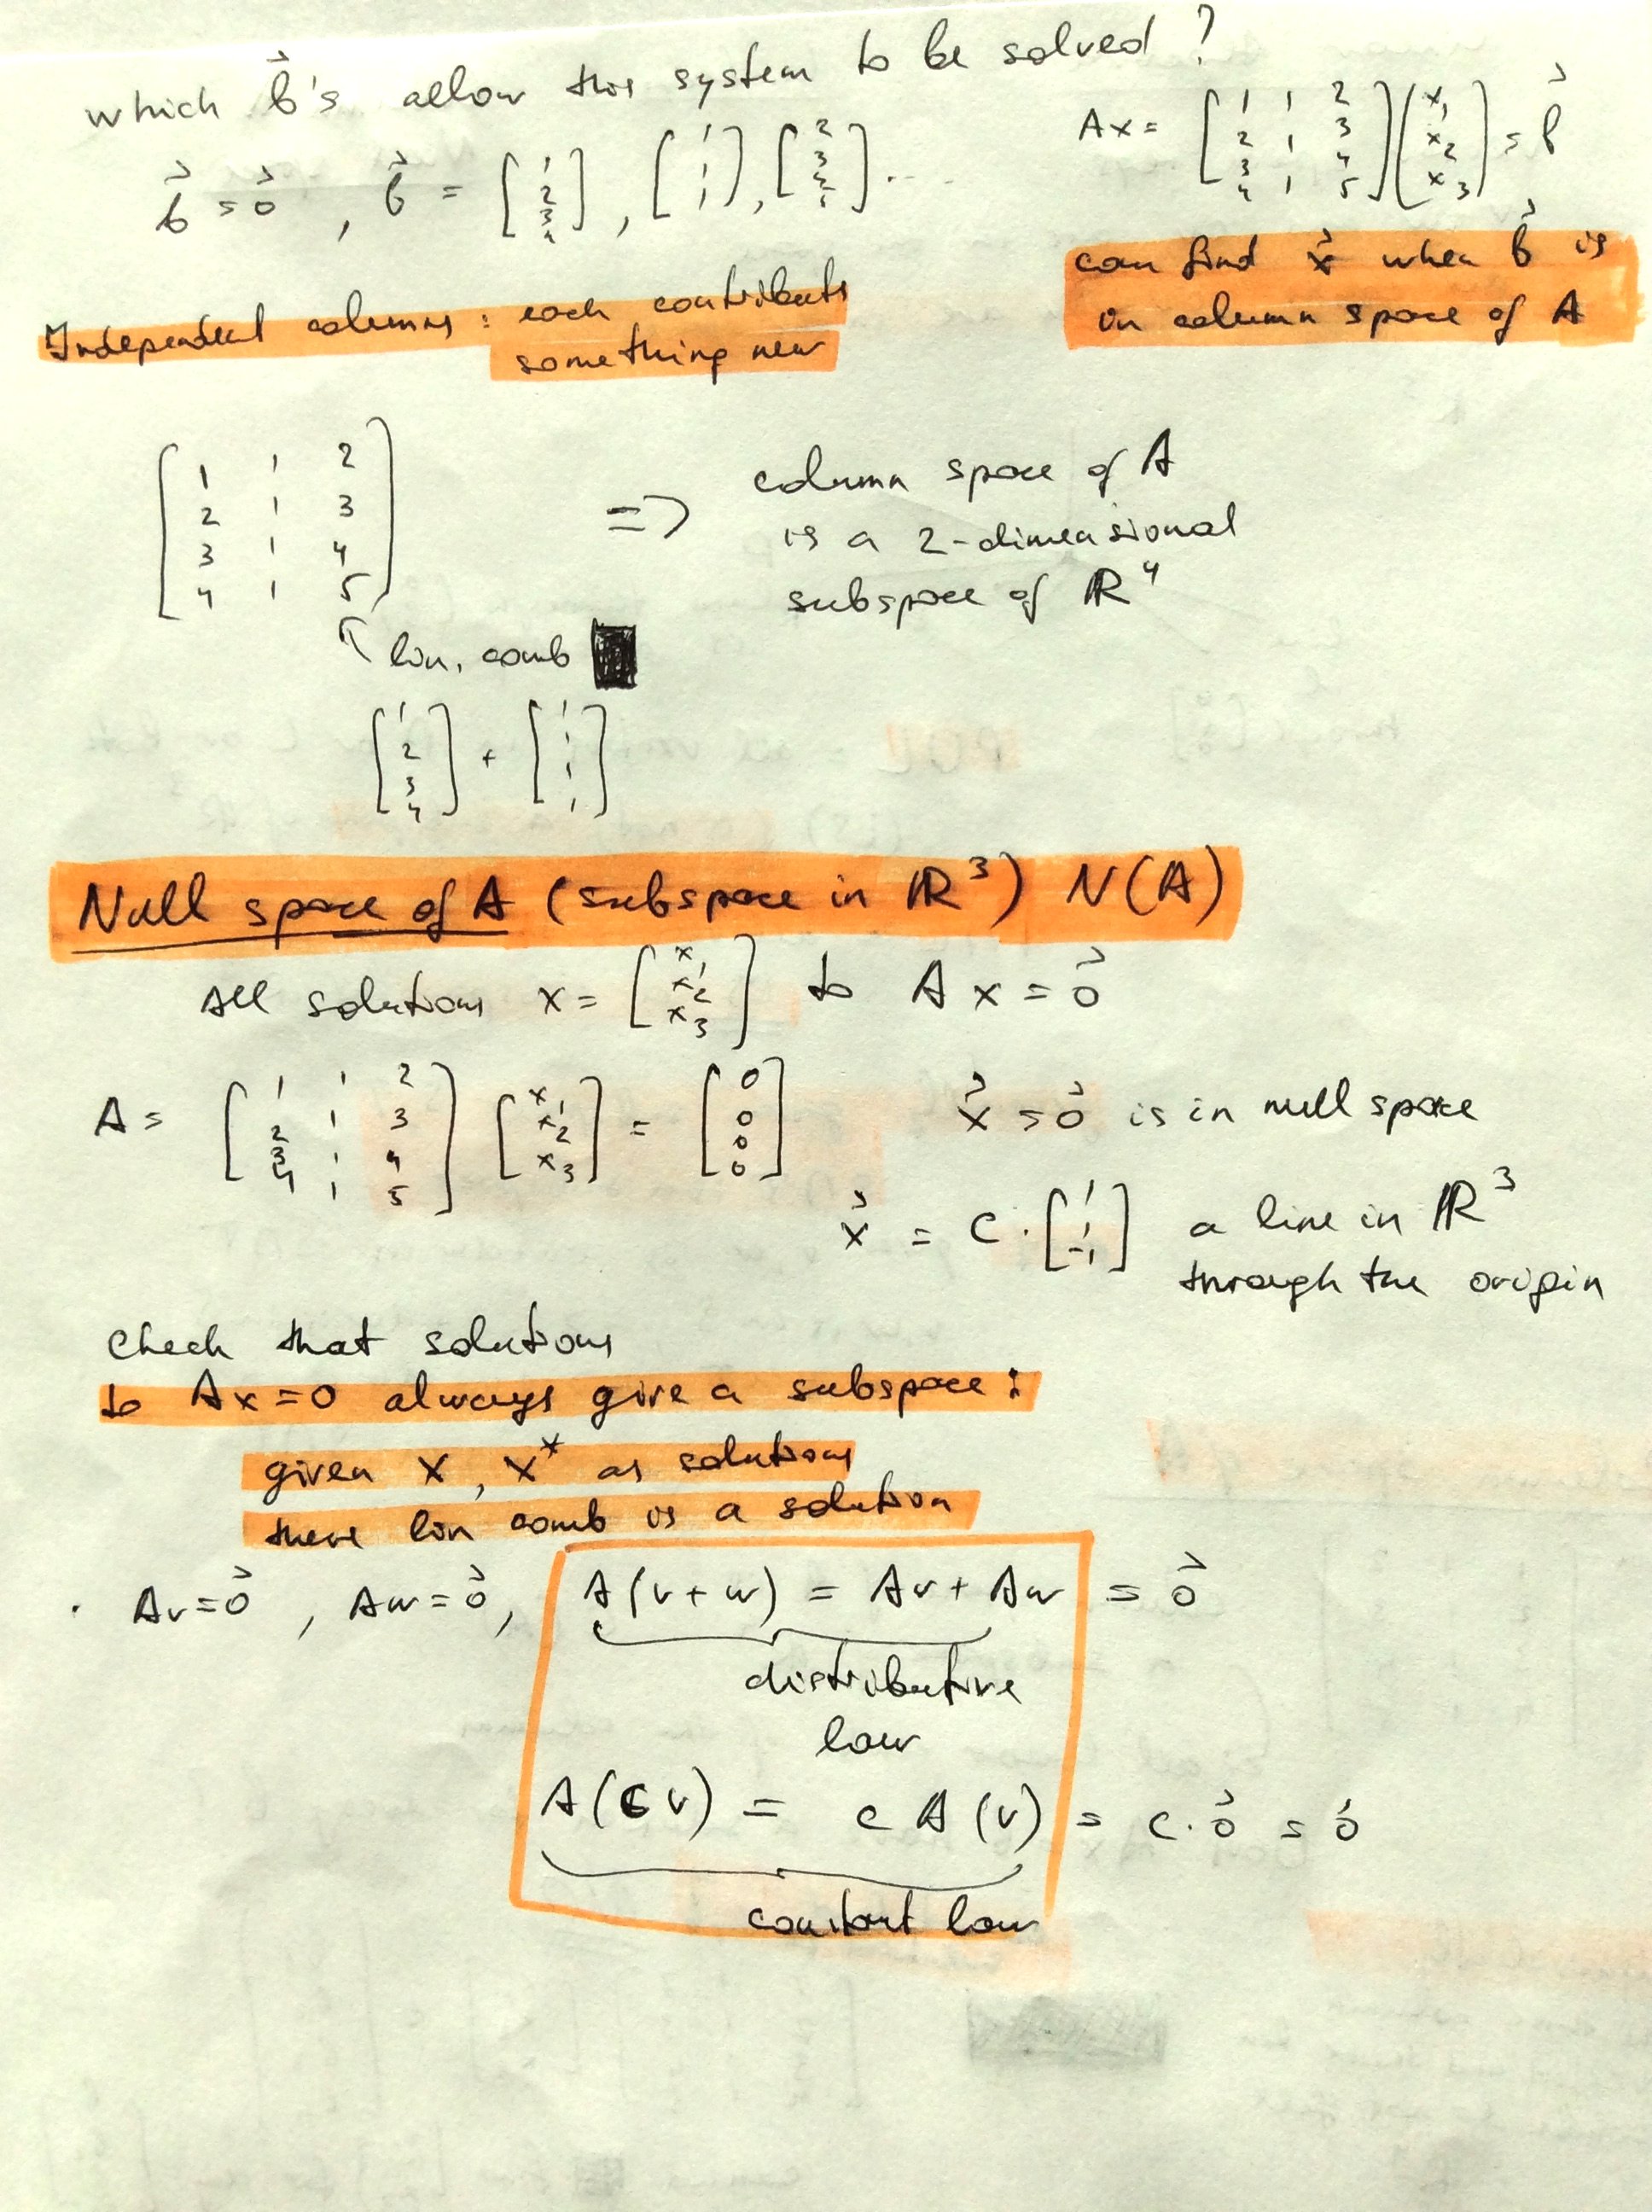 which b⃗'s allow this system to be solved?
Ax = [1 1 2; 2 1 3; 3 1 4; 4 1 5] [x₁; x₂; x₃] = b⃗
b⃗ = 0⃗, b⃗ = [1; 2; 3; 4], [1; 1; 1; 1], [2; 3; 4; 5]...
can find x⃗ when b⃗ is
in column space of A
Independent columns: each contributs
something new
[1 1 2; 2 1 3; 3 1 4; 4 1 5]
=> column space of A
is a 2-dimensional
subspace of ℝ⁴
↑ lin. comb
[1; 2; 3; 4] + [1; 1; 1; 1]
Null space of A (subspace in ℝ³) N(A)
all solutions x = [x₁; x₂; x₃] to Ax = 0⃗
A = [1 1 2; 2 1 3; 3 1 4; 4 1 5] [x₁; x₂; x₃] = [0; 0; 0; 0]
x⃗ = 0⃗ is in null space
x⃗ = c · [1; 1; -1] a line in ℝ³
through the origin
Check that solutions
to Ax=0 always give a subspace:
given x, x* as solutions
there lin comb is a solution
· Av = 0⃗, Aw = 0⃗, A(v+w) = Av + Aw = 0⃗
distributive
law
A(cv) = c A(v) = c · 0⃗ = 0⃗
constant law